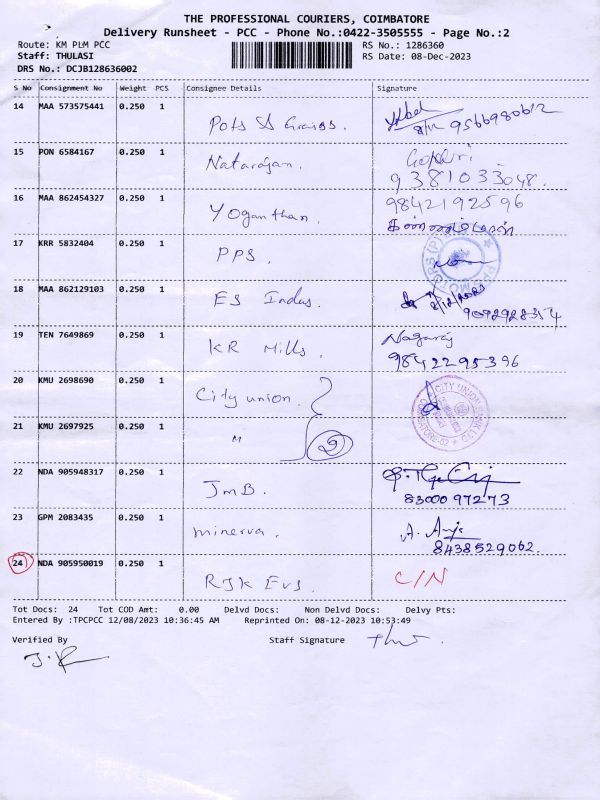 THE PROFESSIONAL COURIERS, COIMBATORE
Delivery Runsheet - PCC - Phone No.:0422-3505555 - Page No.:2
Route: KM PLM PCC
RS No.: 1286360
Staff: THULASI
RS Date: 08-Dec-2023
DRS No.: DCJB128636002
S No Consignment No Weight PCS Consignee Details Signature
14 MAA 573575441 0.250 1
Pots 9566980612
15 PON 6584167 0.250 1
Natarajan. 9381033048.
16 MAA 862454327 0.250 1 9842192596
Yoganthan.
17 KRR 5832404 0.250 1
PPS.
18 MAA 862129103 0.250 1
ES Indus. 8/12/2023
9092928354
19 TEN 7649869 0.250 1 Nagaraj
KR Mills. 9842295396
20 KMU 2698690 0.250 1
City union. CITY UNION BANK
21 KMU 2697925 0.250 1
" 2
22 NDA 905948317 0.250 1
JMB. 8300097273
23 GPM 2083435 0.250 1
minerva. 8438529062.
24 NDA 905950019 0.250 1
RJK Evs. C/N
Tot Docs: 24 Tot COD Amt: 0.00 Delvd Docs: Non Delvd Docs: Delvy Pts:
Entered By :TPCPCC 12/08/2023 10:36:45 AM Reprinted On: 08-12-2023 10:53:49
Verified By Staff Signature